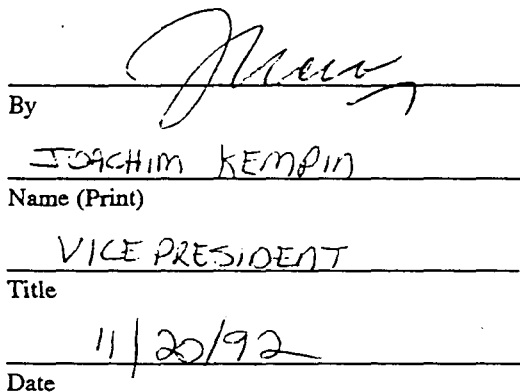 By
JOACHIM KEMPIN
Name (Print)
VICE PRESIDENT
Title
11/20/92
Date